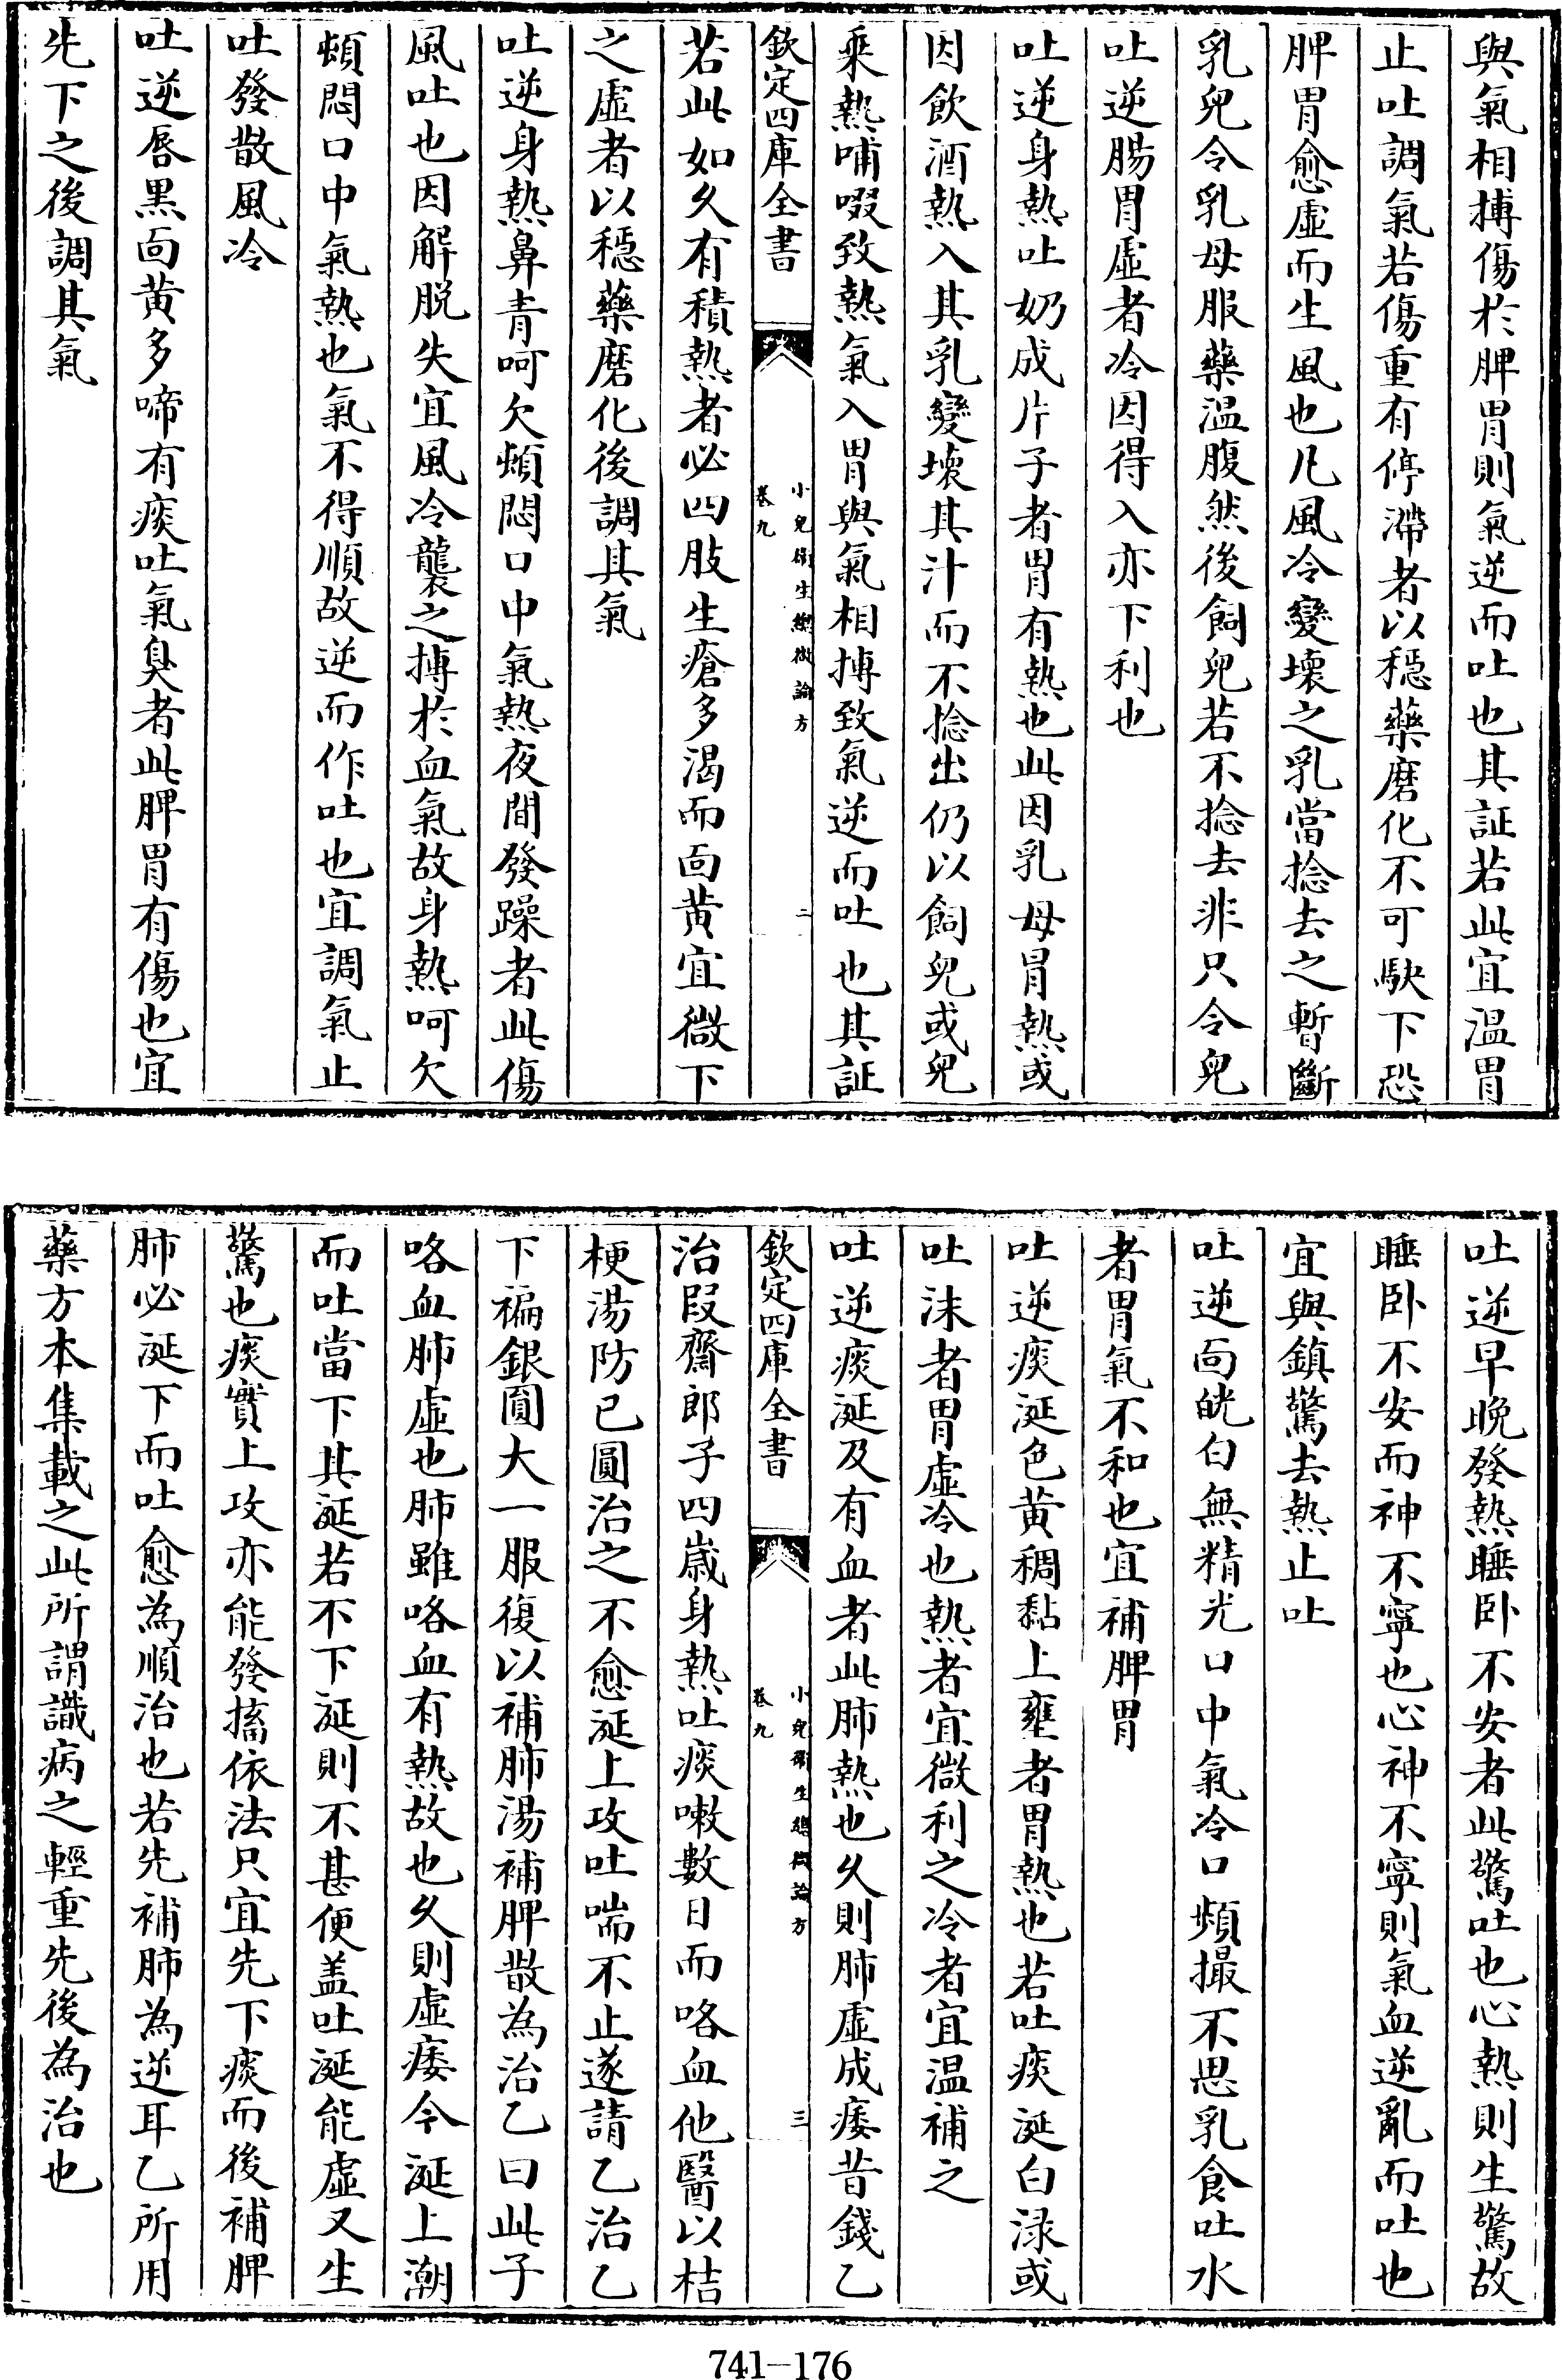 與氣相搏傷於脾胃則氣逆而吐也其証若此宜溫胃
止吐調氣若傷重有停滯者以穩藥磨化不可駃下恐
脾胃愈虛而生風也凡風冷變壞之乳當捻去之暫斷
乳兒令乳母服藥溫腹然後飼兒若不捻去非只令兒
吐逆腸胃虛者冷因得入亦下利也
吐逆身熱吐奶成片子者胃有熱也此因乳母胃熱或
因飲酒熱入其乳變壞其汁而不捻出仍以飼兒或兒
乘熱哺啜致熱氣入胃與氣相搏致氣逆而吐也其証
欽定四庫全書
小兒衛生總微論方
卷九
二
若此如久有積熱者必四肢生瘡多渴而面黃宜微下
之虛者以穩藥磨化後調其氣
吐逆身熱鼻青呵欠頻悶口中氣熱夜間發躁者此傷
風吐也因解脫失宜風冷襲之搏於血氣故身熱呵欠
頻悶口中氣熱也氣不得順故逆而作吐也宜調氣止
吐發散風冷
吐逆唇黑面黃多啼有痰吐氣臭者此脾胃有傷也宜
先下之後調其氣
吐逆早晚發熱睡卧不安者此驚吐也心熱則生驚故
睡卧不安而神不寧也心神不寧則氣血逆亂而吐也
宜與鎮驚去熱止吐
吐逆面㿠白無精光口中氣冷口頻撮不思乳食吐水
者胃氣不和也宜補脾胃
吐逆痰涎色黃稠黏上壅者胃熱也若吐痰涎白渌或
吐沫者胃虛冷也熱者宜微利之冷者宜溫補之
吐逆痰涎及有血者此肺熱也久則肺虛成痿昔錢乙
欽定四庫全書
小兒衛生總微論方
卷九
三
治段齋郎子四歲身熱吐痰嗽數日而咯血他醫以桔
梗湯防已圓治之不愈涎上攻吐喘不止遂請乙治乙
下褊銀圓大一服復以補肺湯補脾散為治乙曰此子
咯血肺虛也肺雖咯血有熱故也久則虛痿今涎上潮
而吐當下其涎若不下涎則不甚便盖吐涎能虛又生
驚也痰實上攻亦能發搐依法只宜先下痰而後補脾
肺必涎下而吐愈為順治也若先補肺為逆耳乙所用
藥方本集載之此所謂識病之輕重先後為治也
741—176